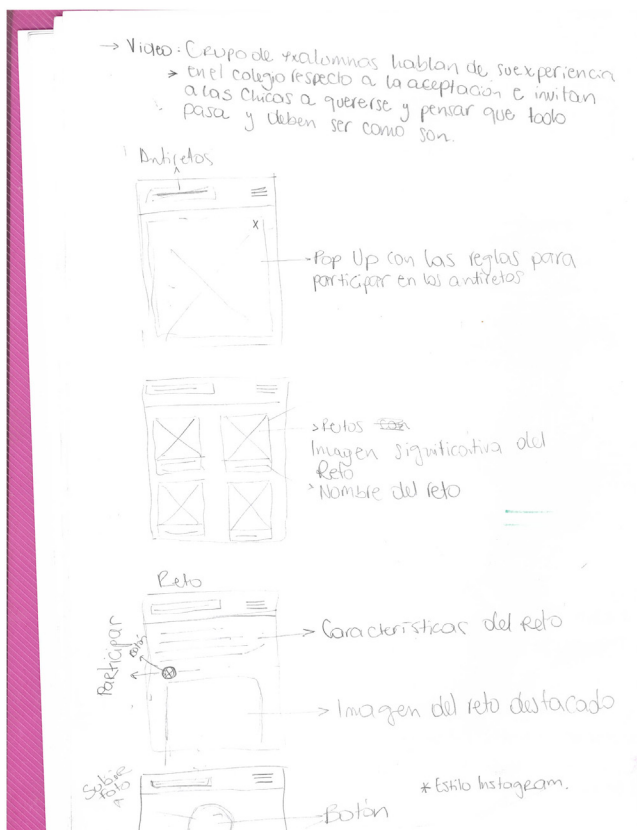 → Video: Grupo de exalumnas hablan de su experiencia
> en el colegio respecto a la aceptación e invitan
a las chicas a quererse y pensar que todo
pasa y deben ser como son.
Antiretos
- Pop Up con las reglas para
participar en los antiretos
> Retos
Imagen significativa del
Reto
> Nombre del reto
Reto
Participar
botón
> Caracteristicas del Reto
> Imagen del reto destacado
Subir
foto
* Estilo Instagram.
- Botón